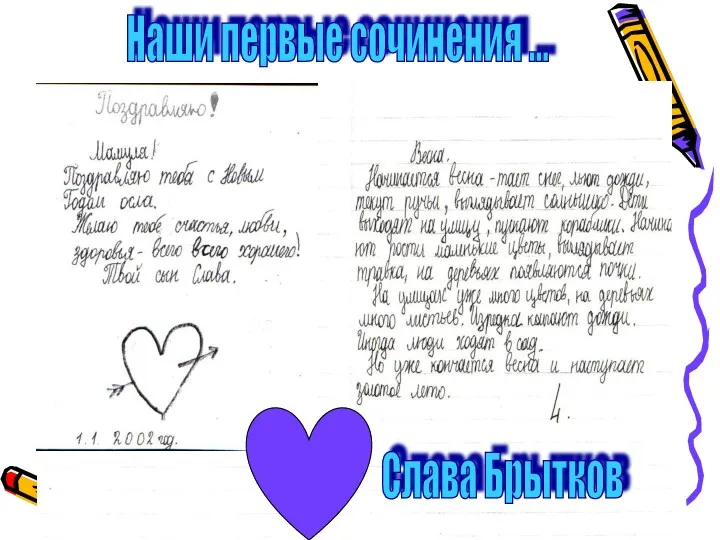 Наши первые сочинения ...
Поздравляю!
Мамуля!
Поздравляю тебя с Новым
Годом осла.
Желаю тебе счастья, любви,
здоровья - всего всего хорошего!
Твой сын Слава.
1.1. 2002 год.
Весна.
Начинается весна - тает снег, льют дожди,
текут ручьи, выглядывает солнышко. Дети
выходят на улицу, пускают кораблики. Начина
ют рости маленькие цветы, выглядывает
травка, на деревьях появляются почки.
На улицах уже много цветов, на деревьях
много листьев. Изредка капают дожди.
Иногда люди ходят в сад.
Но уже кончается весна и наступает
золотое лето.
4.
Слава Брытков